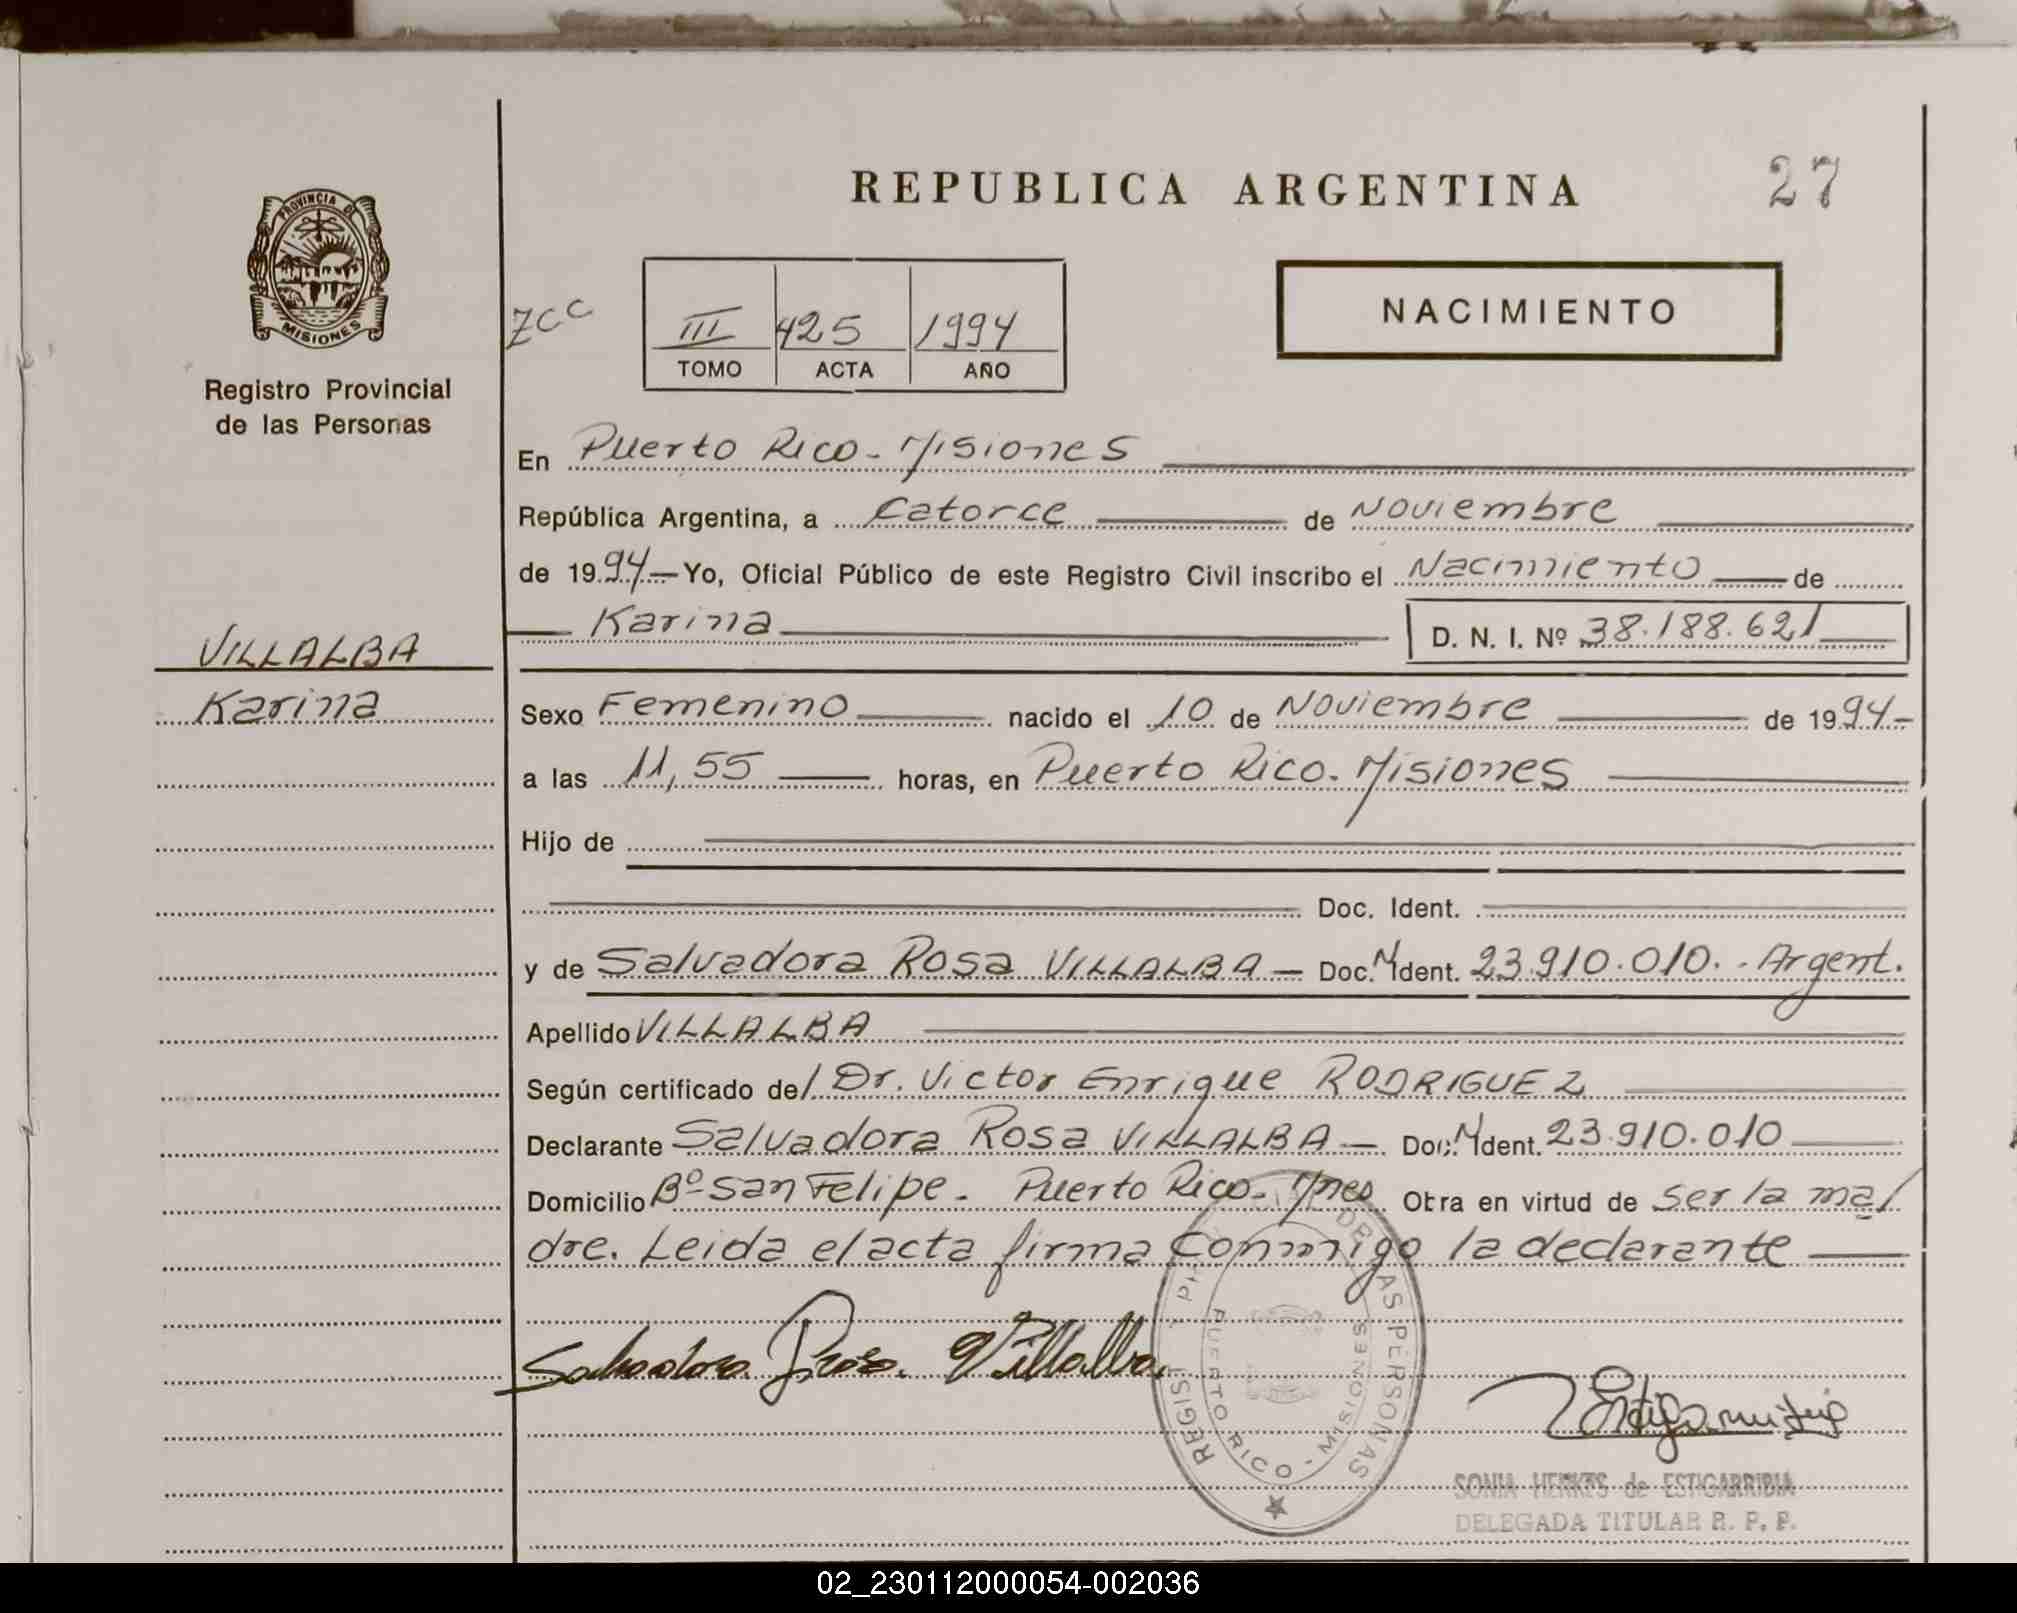 27
REPUBLICA ARGENTINA
PROVINCIA DE
MISIONES
Registro Provincial
de las Personas
ZCC
III 425 1994
TOMO ACTA AÑO
NACIMIENTO
En Puerto Rico - Misiones
República Argentina, a Catorce de Noviembre
de 1994 Yo, Oficial Público de este Registro Civil inscribo el Nacimiento de
Karina D. N. I. Nº 38.188.621
VILLALBA
Karina
Sexo Femenino nacido el 10 de Noviembre de 1994-
a las 11,55 horas, en Puerto Rico. Misiones
Hijo de
Doc. Ident.
y de Salvadora Rosa VILLALBA - Doc. N Ident. 23.910.010. - Argent.
Apellido VILLALBA
Según certificado del Dr. Victor Enrique RODRIGUEZ
Declarante Salvadora Rosa VILLALBA - Doc. N Ident. 23.910.010
Domicilio Bº San Felipe. Puerto Rico. Mnes Obra en virtud de ser la ma/
dre. Leida el acta firma conmigo la declarante
Salvadora Rosa Villalba.
DE LAS PERSONAS
PUERTO RICO - MISIONES
SONIA HERKES de ESTIGARRIBIA
DELEGADA TITULAR R. P. P.
02_230112000054-002036